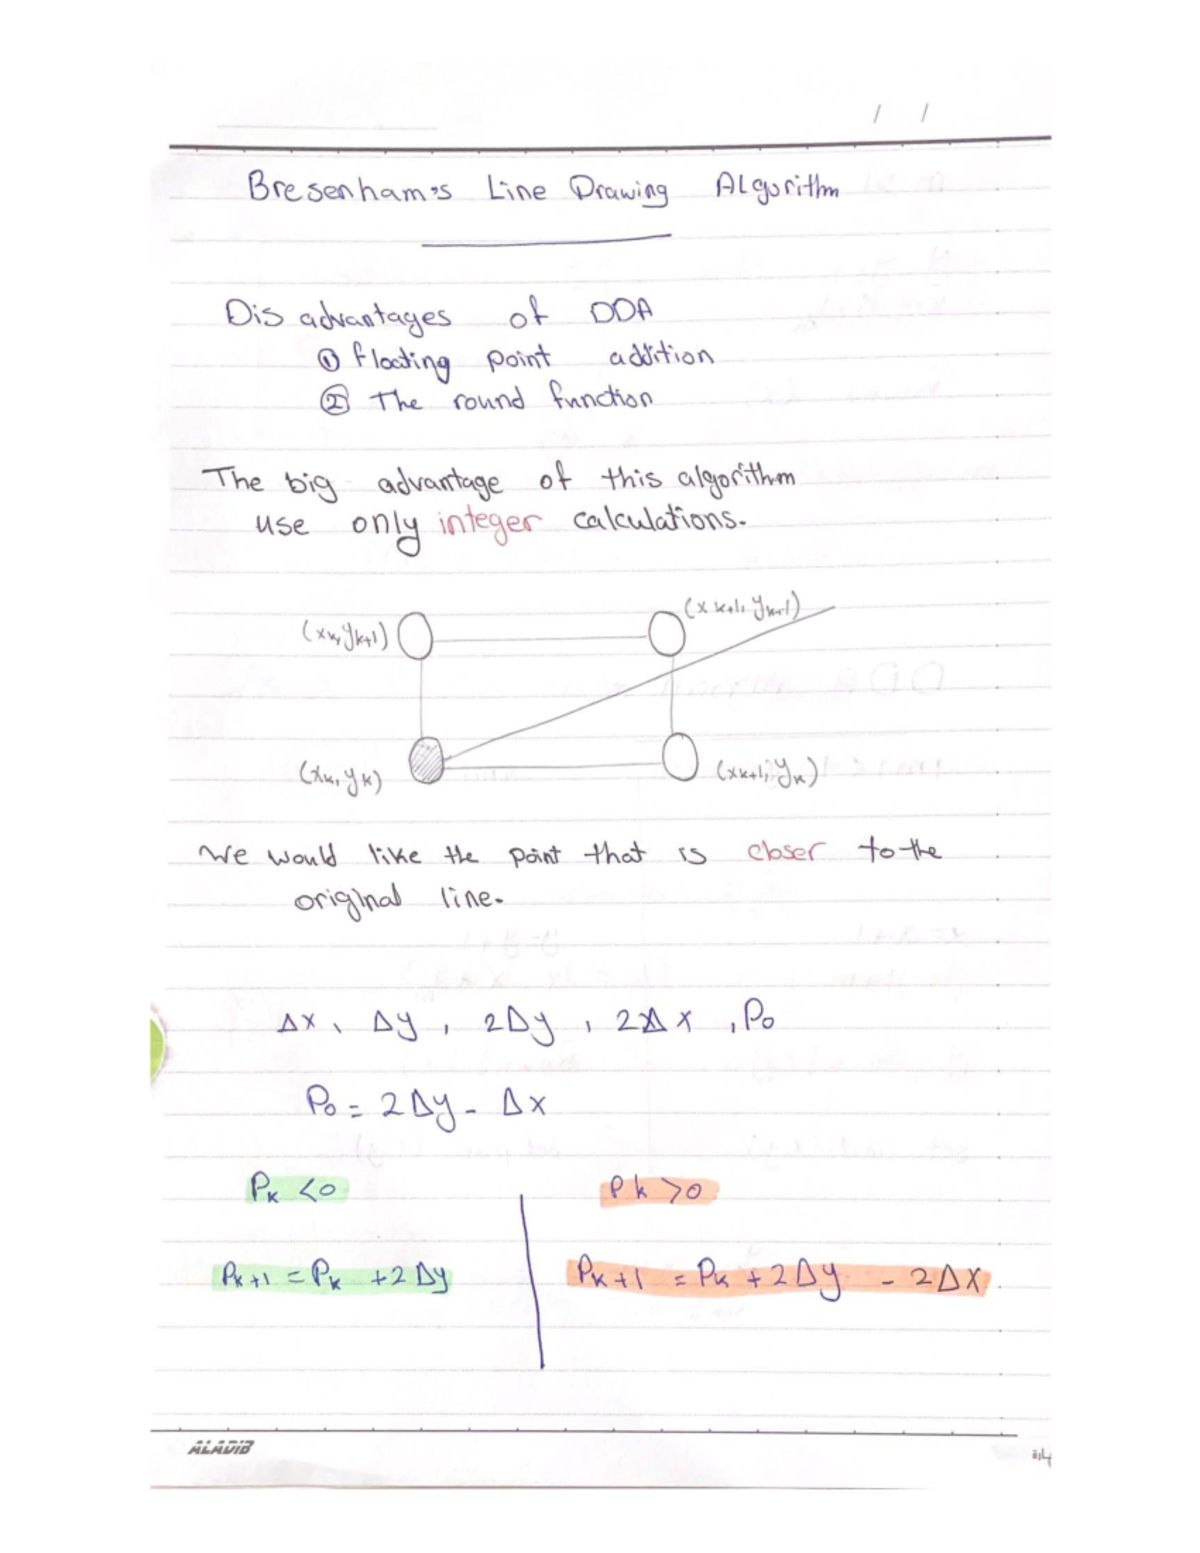 / /
Bresenham's Line Drawing ALgorithm
Dis advantages of DDA
① floating point addition
② The round function
The big advantage of this algorithm
use only integer calculations.
(xk, yk+1) (xk+1, yk+1)
(xk, yk) (xk+1, yk)
We would like the point that is closer to the
original line.
Δx, Δy, 2Δy, 2Δx, P₀
P₀ = 2Δy - Δx
Pk <0 Pk >0
Pk+1 = Pk +2Δy Pk+1 = Pk +2Δy - 2Δx
ALADIB